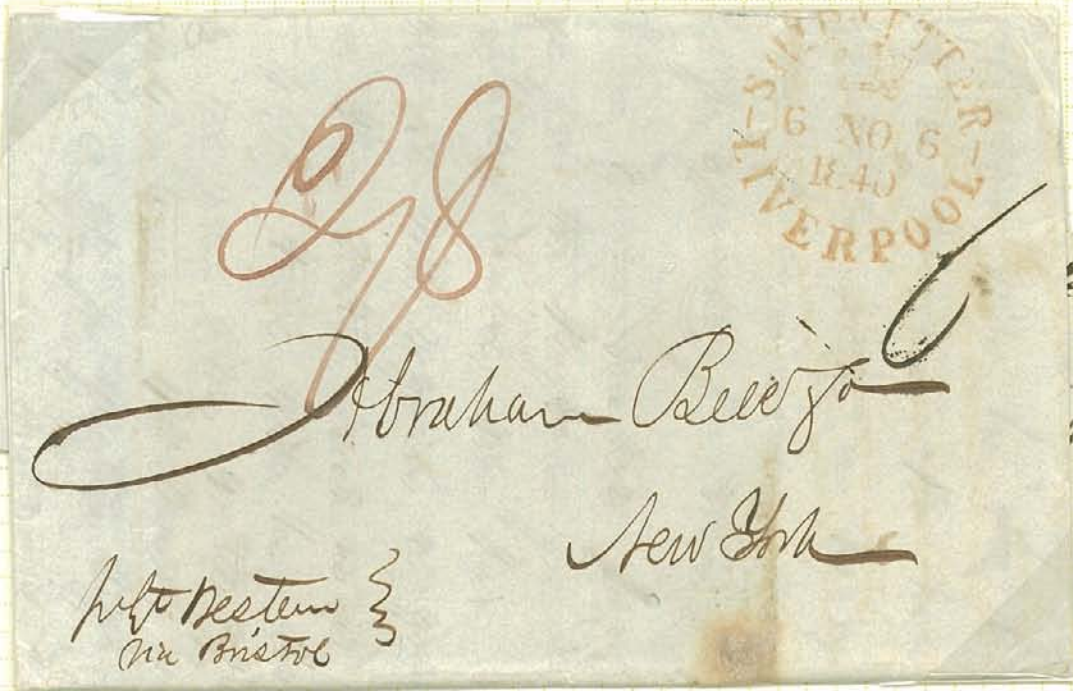 SHIP LETTER
6 NO 6
1840
LIVERPOOL
2/8
6
Abraham Bell & Co
New York
p Gt Western
via Bristol